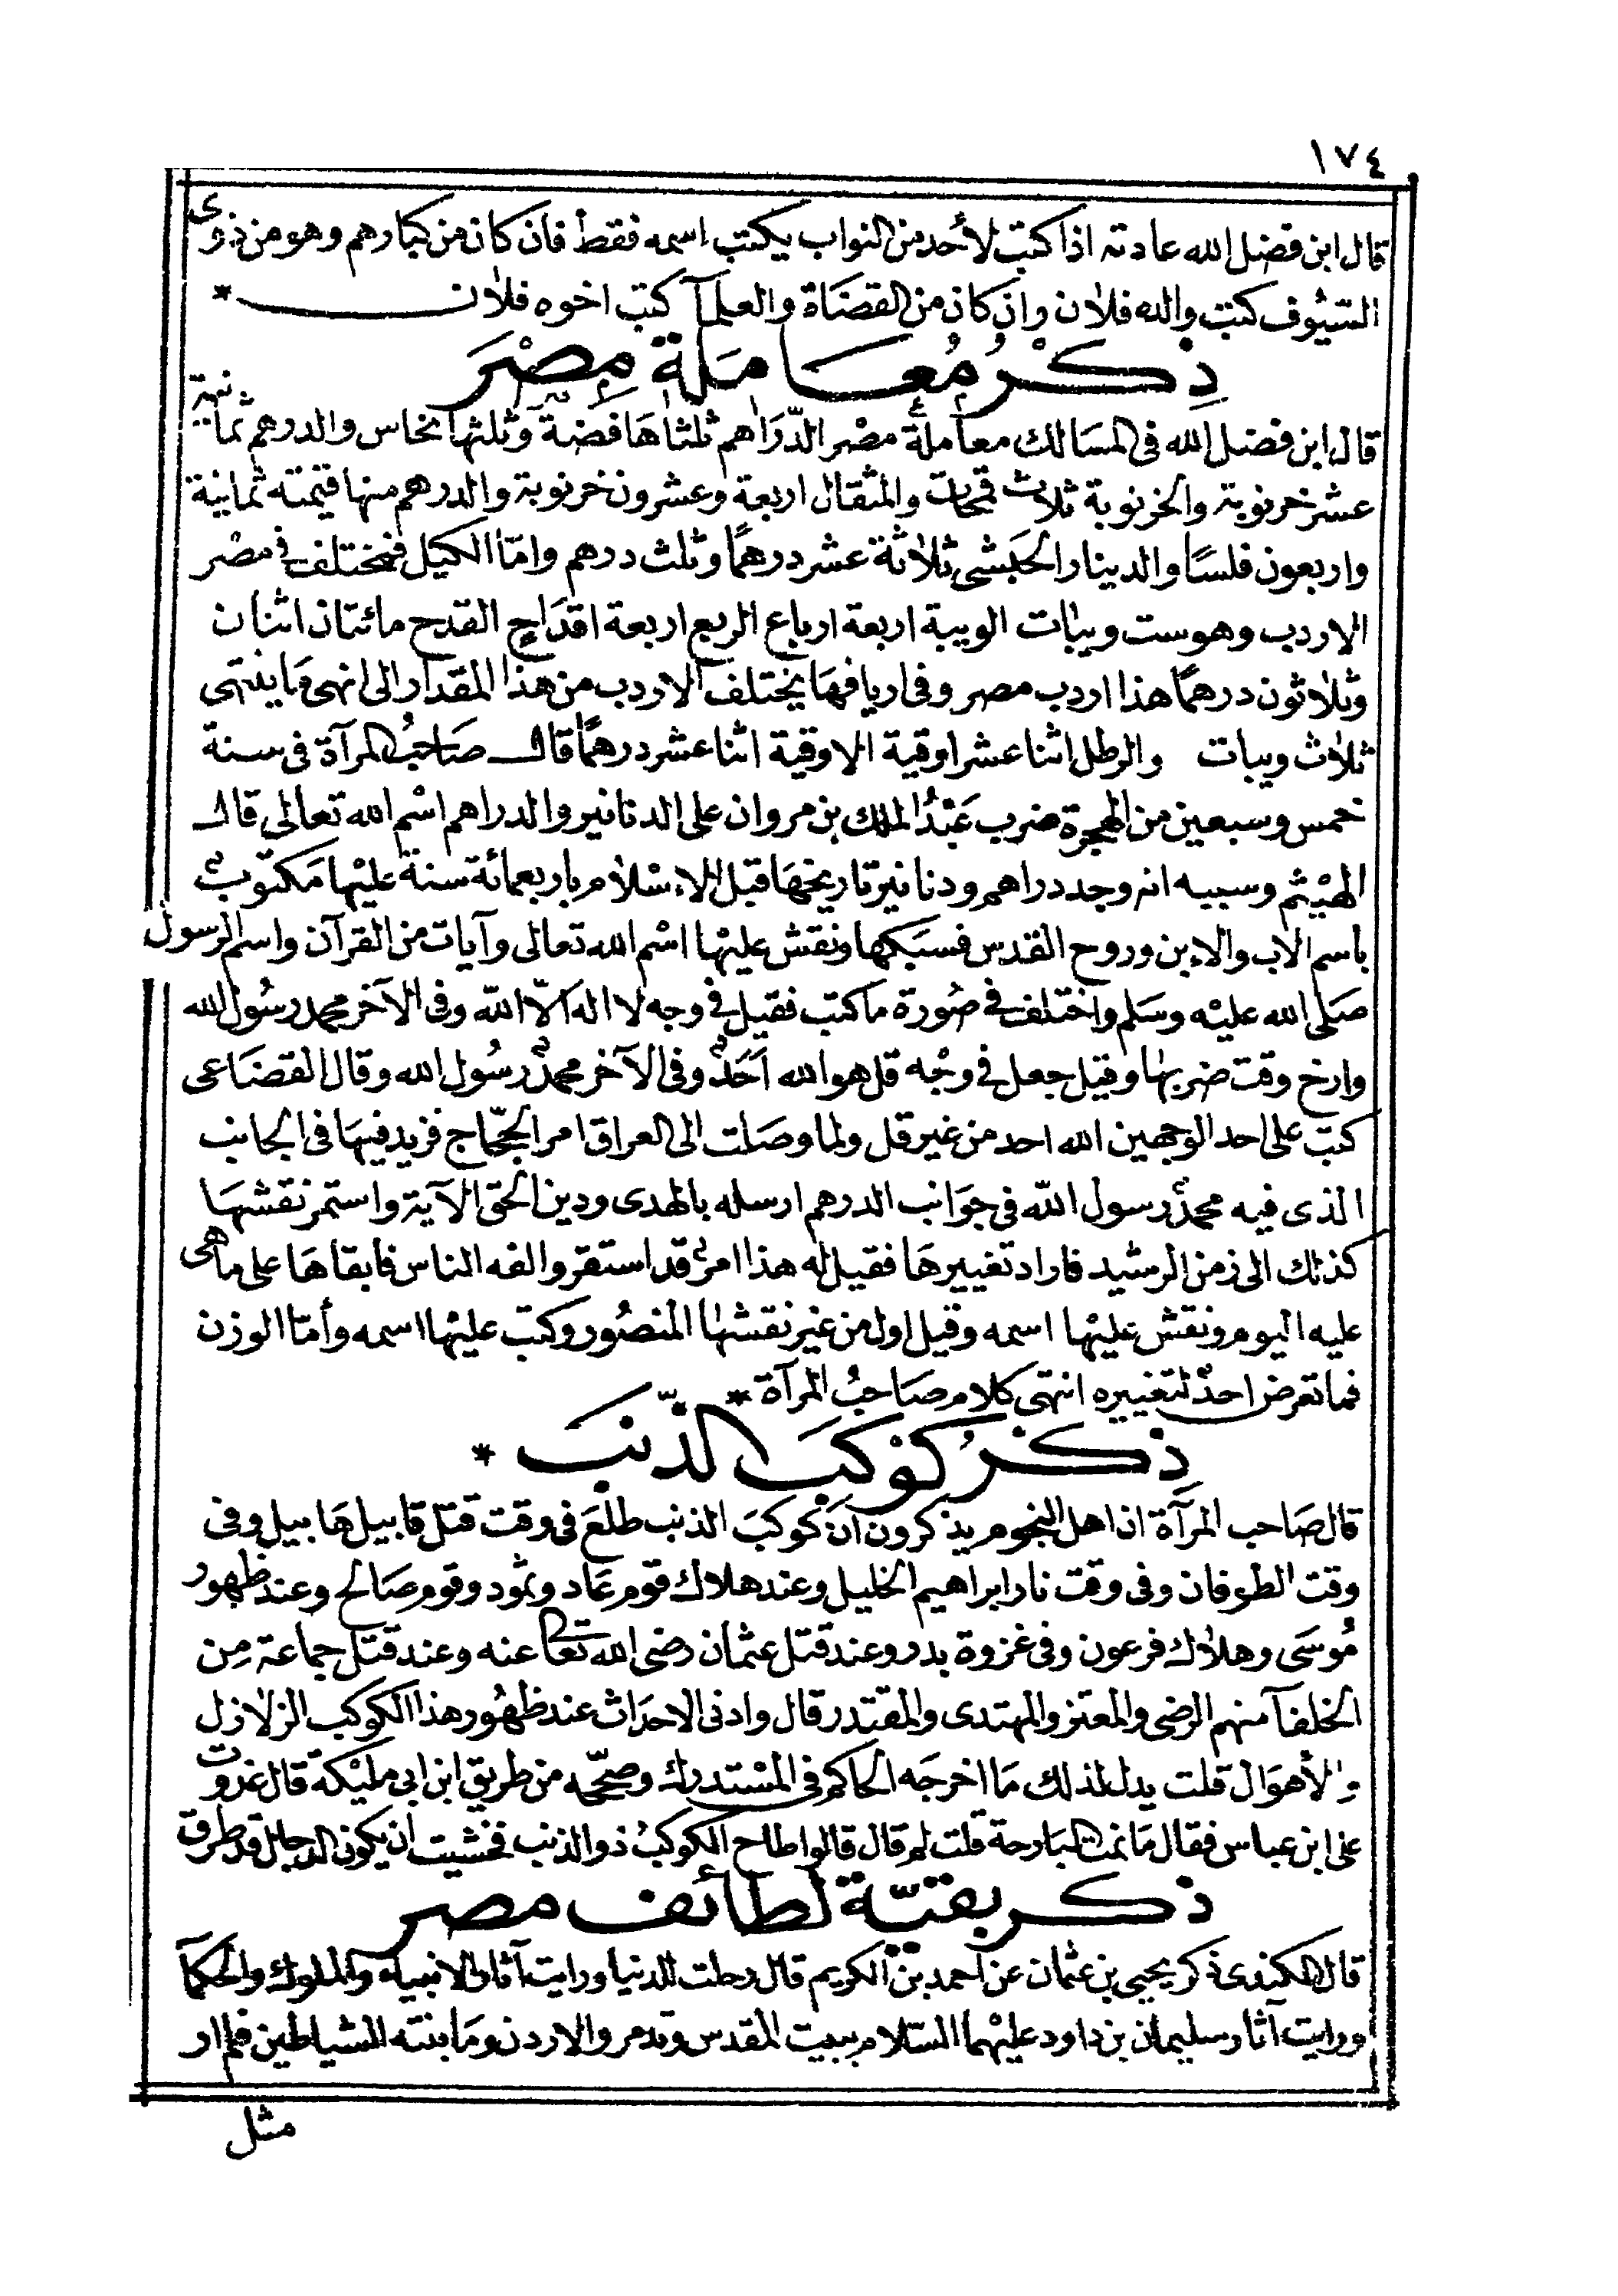 ١٧٤
قال ابن فضل الله عادته اذا كتب لأحد من النواب يكتب اسمه فقط فان كان من كبارهم وهو من ذوى
السّيُوف كتب والده فلان وان كان من القضَاة والعلمآ كتب اخوه فلان *
ذِكْرُ مُعَامَلَةِ مِصْرَ
قال ابن فضل الله فى المسَالك معاملة مصْر الدّرَاهم ثلثاهَا فضة وثلثها نحاس والدرهم ثمانية
عشر خرنوبة والخرنوبة ثلاث قمحات والمثقال اربعة وعشرون خرنوبة والدرهم منها قيمته ثمانية
واربعون فلسًا والدينار الحبشى ثلاثة عشر درهمًا وثلث درهم وامّا الكيل فمختلف فى مصْر
الاردب وهو ست ويبات الويبة اربعة ارباع الربع اربعة اقدَاحٍ القدح مائتان اثنان
وثلاثون درهمًا هذا اردب مصر وفى اريافهَا يختلف الاردب من هذا المقدار الى انهى مَا ينتهى
ثلاث ويبات والرطل اثنا عشر اوقية الاوقية اثنا عشر درهمًا قال صَاحبُ المرآة فى سنة
خمس وسبعين من الهجرة ضرب عَبْدُ الملك بن مروان على الدنانير والدراهم اسْم الله تعالى قال
الهيْثم وسببه انه وجد دراهم ودنانير تاريخهَا قبل الاءسْلام باربعمائة سنة عليْها مَكتوبٌ
باسم الاب والاءبن وروح القدس فسَبكها ونقش عليْها اسْم الله تعالى وآيات من القرآن واسم الرسول
صَلى الله عليْه وسَلم واختلف فى صُورة ما كتب فقيل فى وجه لا اله الاّ الله وفى الآخر محمد رسُول الله
وارخ وقت ضربها وقيل جعل فى وجْه قل هو الله اَحَدٌ وفى الآخر محمدٌ رسُول الله وقال القضَاعى
كتب على احد الوجهين الله احد من غير قل ولما وصَلت الى العراق امر الحجّاج فزيد فيهَا فى الجانب
الذى فيه محمدٌ رسول الله فى جوَانب الدرهم ارسله بالهدى ودين الحق الآية واستمر نقشهَا
كذلك الى زمن الرشيد فاراد تغييرهَا فقيل له هذا امرٌ قد استقر والفه الناس فابقاهَا على ما هى
عليه اليوم ونقش عليْها اسمه وقيل اول من غير نقشهَا المنصُور وكتب عليْها اسمه وأمّا الوزن
فما تعرض احدٌ لتغييره انتهى كلام صَاحبُ المرآة *
ذكرُ كَوْكَبَ الذّنَبَ *
قال صَاحب المرآة ان اهل النجوم يذكرون انَ كوكبَ الذنب طلعَ فى وقت قتل قابيل هَابيل وفى
وقت الطوفان وفى وقت نار ابراهيم الخليل وعند هلاك قوم عَاد وثمود وقوم صَالح وعند ظهور
مُوسَى وهلاك فرعون وفى غزوة بدر وعند قتل عثمان رضى الله تعالى عنه وعند قتل جماعة مِن
الخلفآ منهم الرضى والمعتز والمهتدى والمقتدر قال وادنى الاحدَاث عند ظهُور هذا الكوكب الزلازل
والأهوَال قلت يدل لذلك مَا اخرجَه الحاكم فى المسْتدرك وصحّحه من طريق ابن ابى مليْكة قال غدوت
على ابن عباس فقال مَا نمت البَارحة قلت لم قال قالوا طلع الكوكبُ ذو الذنب فخشيت ان يكون الدجال قد طرق
ذكر بقيّة لطائف مصر
قال الكندى ذكر يحيى بن عثمان عن احمد بن الكريم قال دخلت الدنيا ورايت آثار الانبياء والملوك والحكمآ
ورايت آثار سليمان بن داود عليْهما السّلام ببيت المقدس وتدمر والاردن ومَا بنته الشياطين فلم ار
مثل